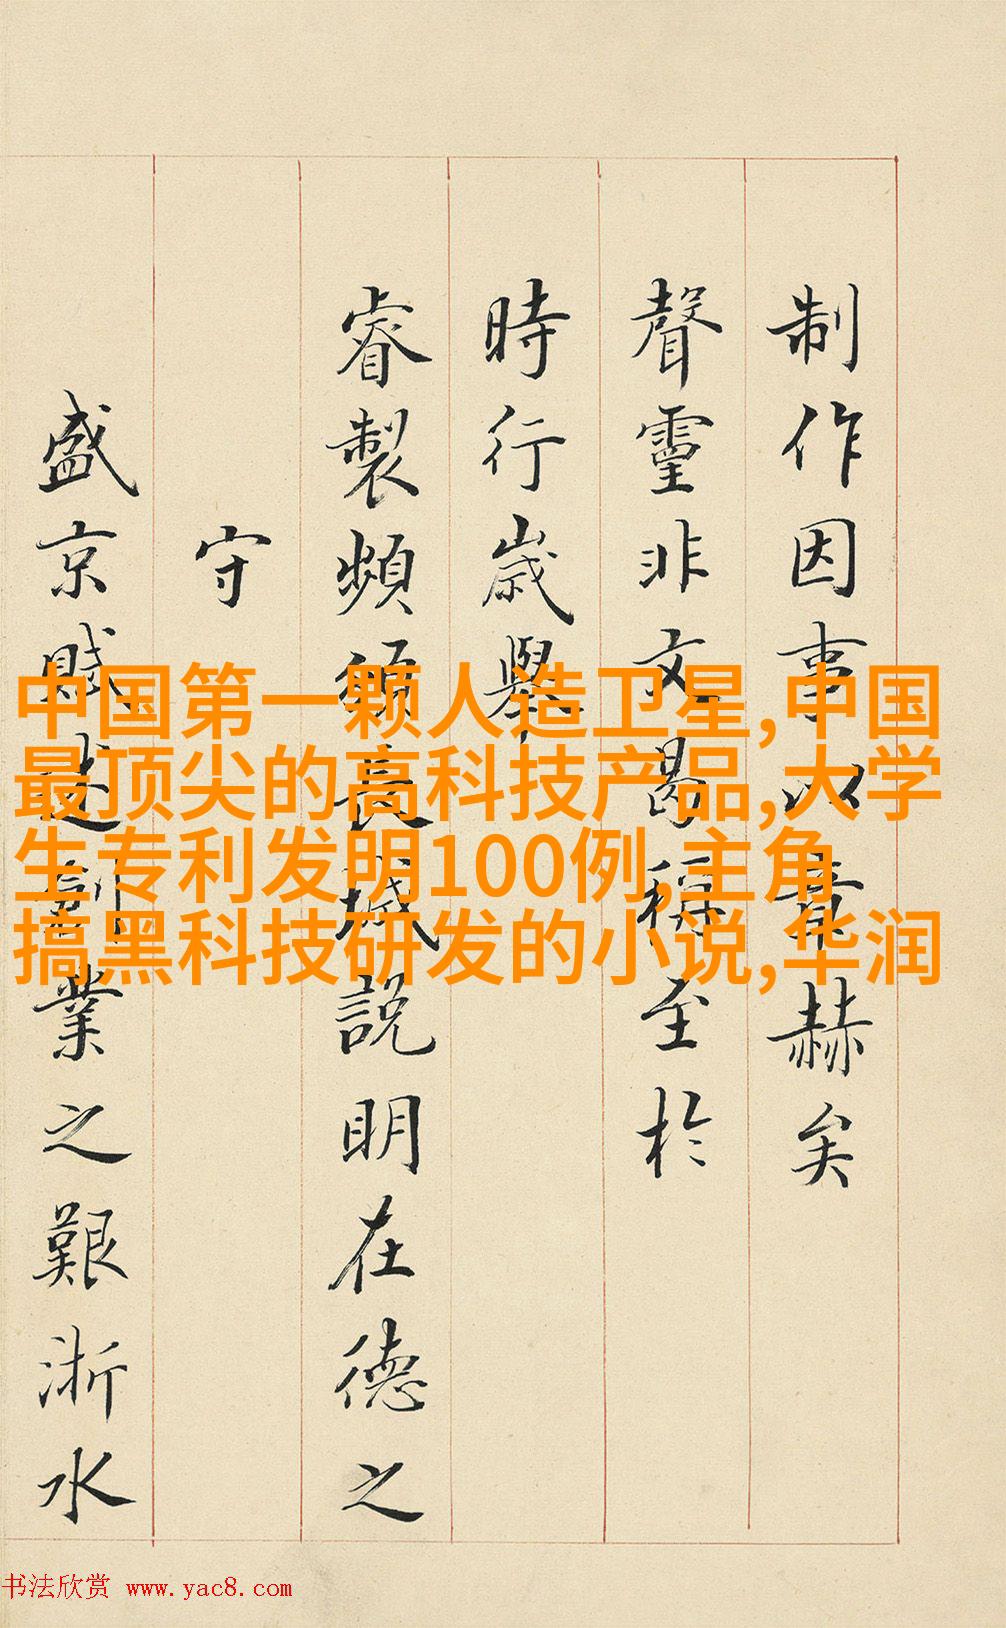 制作因事以赫矣
聲靈非文曷稱至於
時行歲舉
睿製頻頒長城說明在德之
守
盛京賦述創業之艱浙水
中国第一颗人造卫星,中国
最顶尖的高科技产品,大学
生专利发明100例,主角
搞黑科技研发的小说,华润
书法欣赏 www.yac8.com